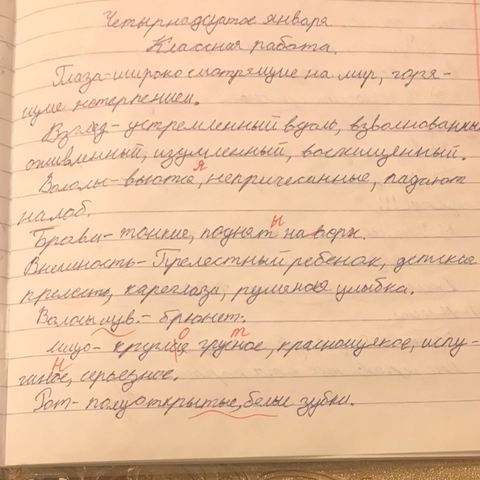 Четырнадцатое января
Классная работа.
Глаза-широко смотрящие на мир, горя-
щие нетерпением.
Взгляд- устремленный вдоль, взволнованный
оживлнный, изумленный, восхищенный.
Вололы- вьютя, непричесанные, падают
на лоб.
Брови- тонкие, поднят ы на верх.
Внешность- Прелестный ребенок, детская
прелесть, кареглаза, румяная улыбка.
Волосы мув.- брюнет.
Лицо- круглое грустное, краснощекое, испу-
ганое, серьезное.
Рот- полуоткрытые, белые зубки.